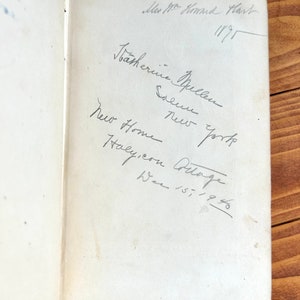 Mrs Wm Howard Hart
189
Katherine Miller
Salem
New York
New Home
Halycon Cottage
Dec 15, 19